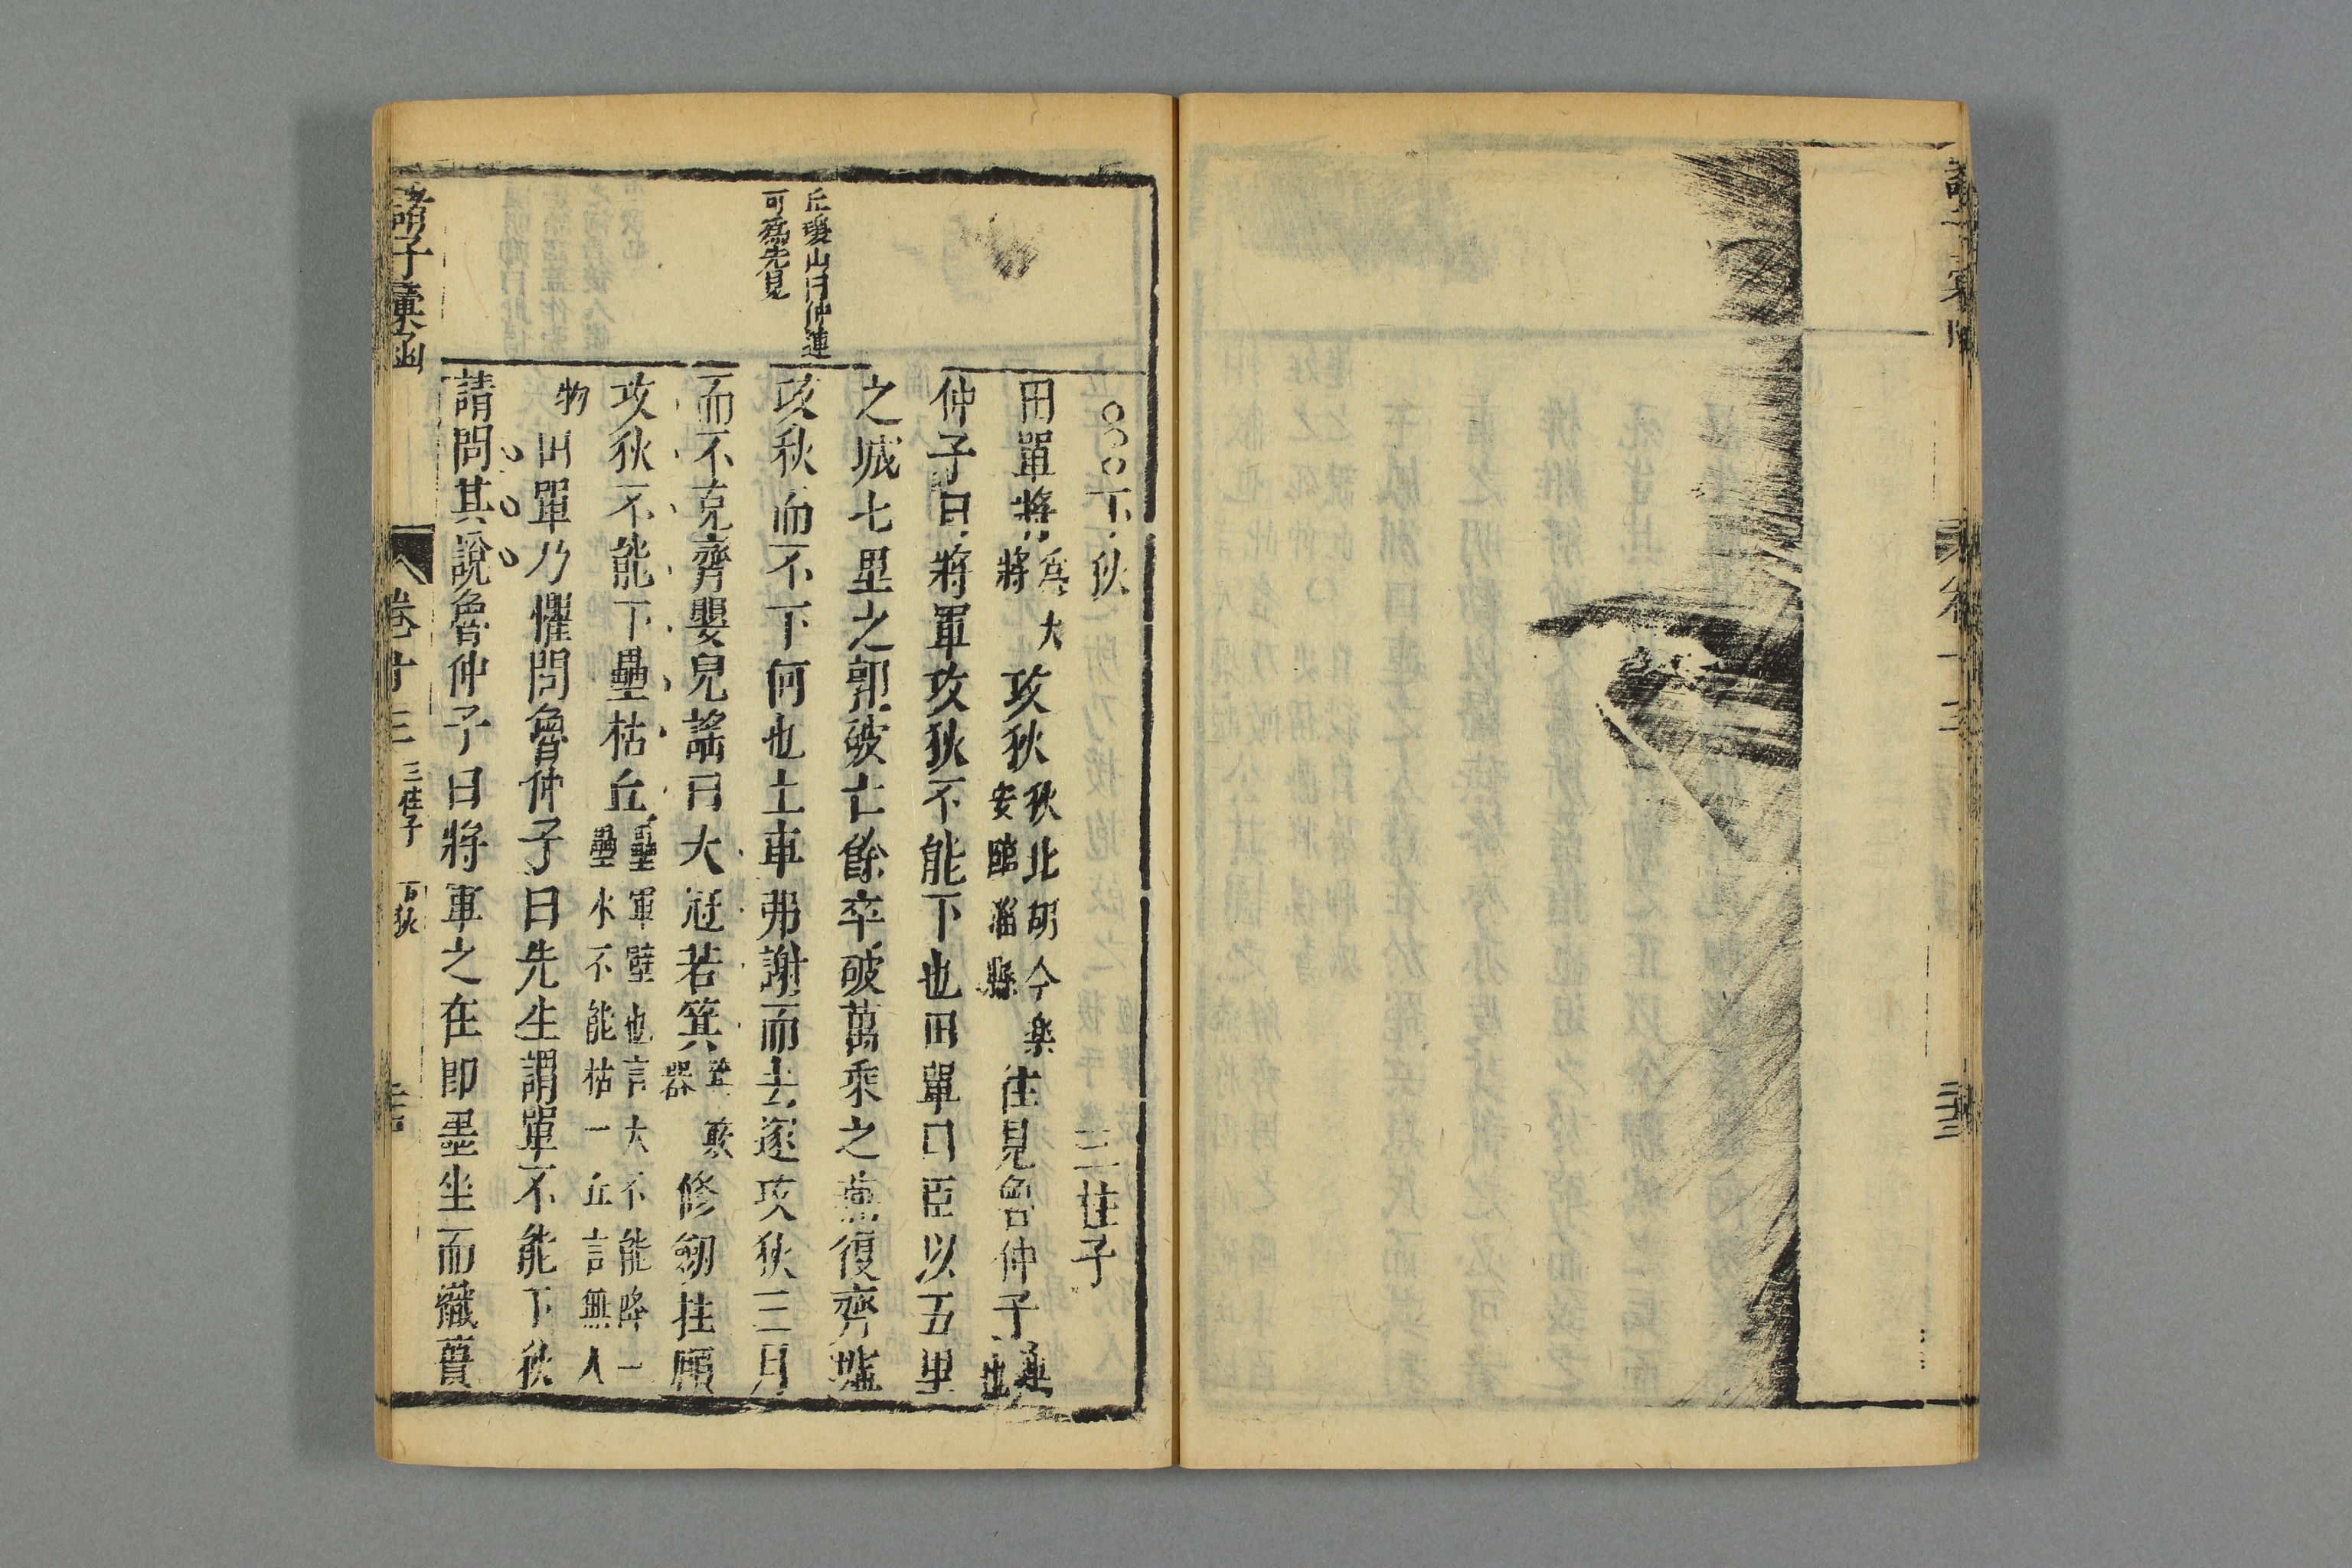 丘瓊山曰仲連
可為先見
○○○下狄 三隹子
田單將為大將攻狄狄北胡今樂安臨淄縣往見魯仲子連也
仲子曰將軍攻狄不能下也田單曰臣以五里
之城七里之郭破亡餘卒破萬乘之燕復齊墟
攻狄而不下何也上車弗謝而去遂攻狄三月
而不克齊嬰兒謠曰大冠若箕箕簸器修劒拄頤
攻狄不能下壘枯丘壘軍壁也言大不能降一壘水不能枯一丘言無人
物田單乃懼問魯仲子曰先生謂單不能下狄
請問其說魯仲子曰將軍之在即墨坐而織蕢
諸子彙函
卷十三
三隹子
下狄